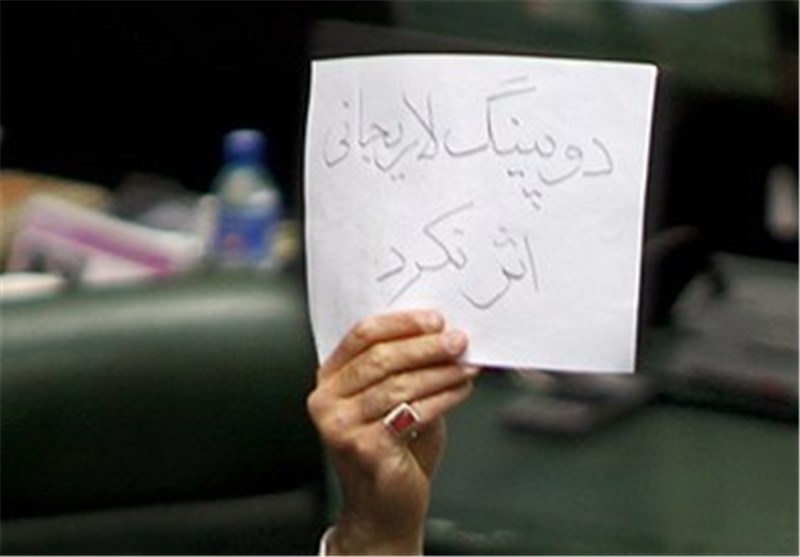 دوپینگ لاریجانی
اثر نکرد